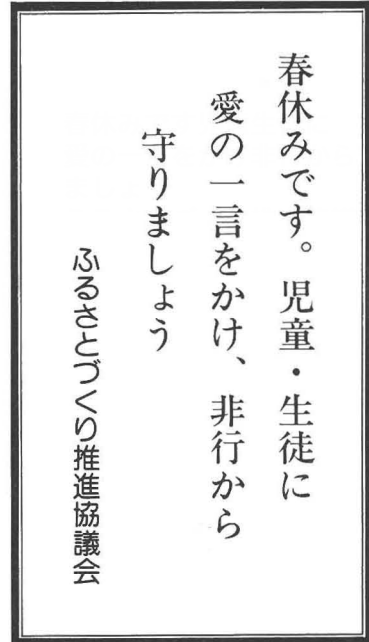 春休みです。児童・生徒に
愛の一言をかけ、非行から
守りましょう
ふるさとづくり推進協議会